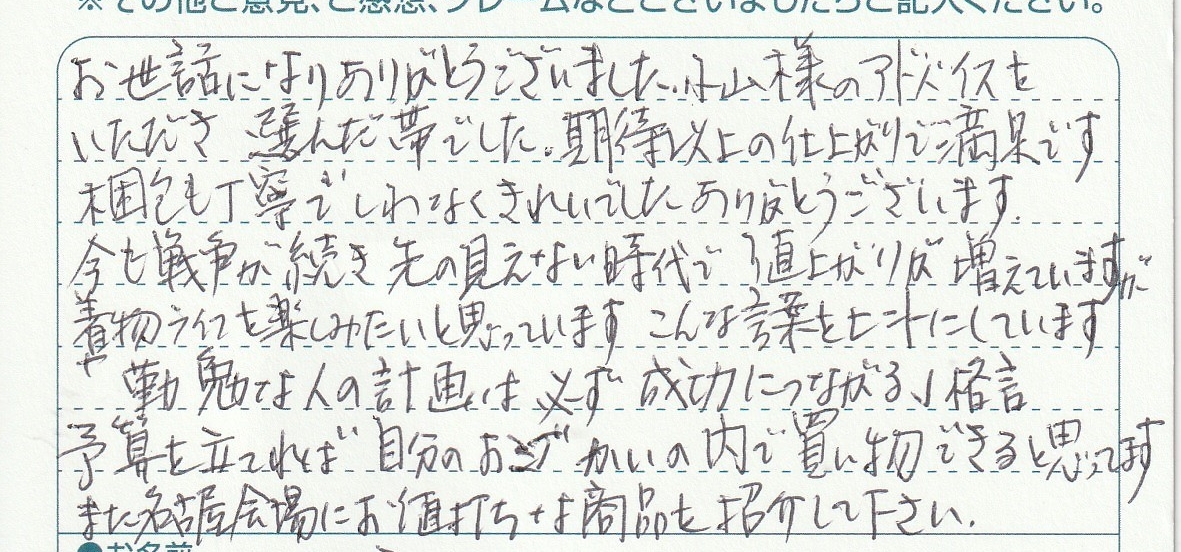 ※その他ご意見、ご感想、クレームなどございましたらご記入ください。
お世話になりありがとうございました。小山様のアドバイスを
いただき 選んだ帯でした。期待以上の仕上がりで満足です
梱包も丁寧でしわなくきれいでした ありがとうございます。
今も戦争が続き 先の見えない時代で 値上がりが 増えていますが
着物ライフを楽しみたいと思っています こんな言葉をヒントにしています
勤勉な人の計画は 必ず 成功につながる」格言
予算を立てれば 自分のおこづかいの内で買い物できると思ってます
また名古屋会場にお値打ちな商品を紹介して下さい。
●お名前